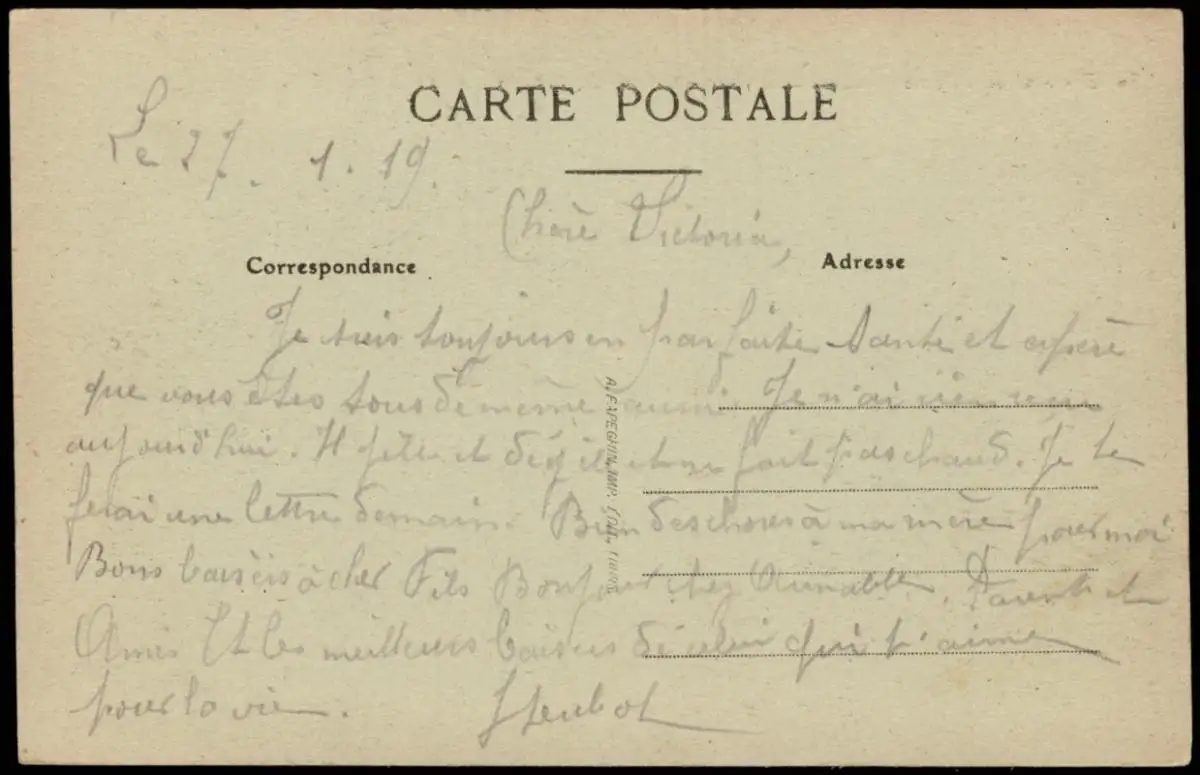 CARTE POSTALE
Le 27. 1. 19.
Chère Victoria,
Correspondance
Adresse
Je suis toujours en parfaite santé et espère
que vous êtes tous de même aussi. Je n'ai rien reçu
aujourd'hui. Il gèle et il ne fait pas chaud. Je te
ferai une lettre demain. Bien des choses à ma mère pour moi
Bons baisers à cher Fils Bonjour chez Parents et
Amis Et les meilleurs baisers de celui qui t'aime
pour la vie.
A. PAPEGHIN, IMP. EDIT. TOURS